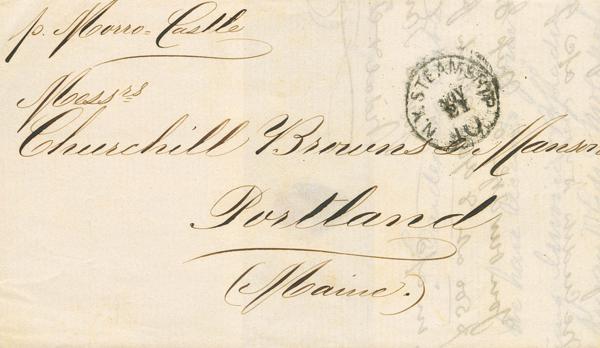 p. Morro-Castle
N.Y. STEAMSHIP
10
Messrs
Churchill Browns & Manson
Portland
(Maine.)